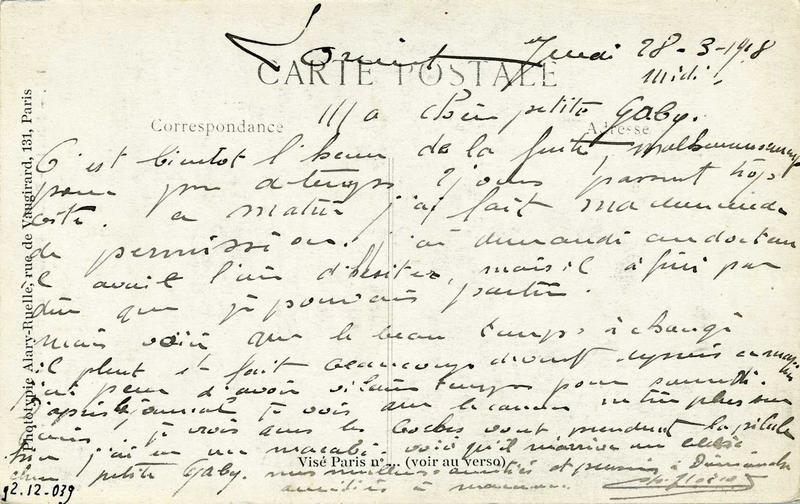 Lorient Jeudi 28-3-1918
midi.
CARTE POSTALE
Correspondance
Adresse
Ma chère petite Gaby.
C'est bientôt l'heure de la fuite, malheureusement
pour peu de temps, 2 jours passent trop
vite. ce matin j'ai fait ma demande
de permission. j'ai demandé au docteur
il avait l'air d'hésiter, mais il a fini par
dire que je pouvais partir.
mais voici que le beau temps a changé
il pleut et fait beaucoup de vent depuis ce matin
j'ai peur d'avoir vilain temps pour samedi.
d'après le journal je vois que le canon
je crois que les boches vont prendre la pilule
j'ai vu un macabé voici qu'il m'arrive un
petite Gaby. et pensées à Dimanche
à maman.
Visé Paris n°... (voir au verso)
Phototypie Alary-Ruelle, rue de Vaugirard, 131, Paris
92.12.039